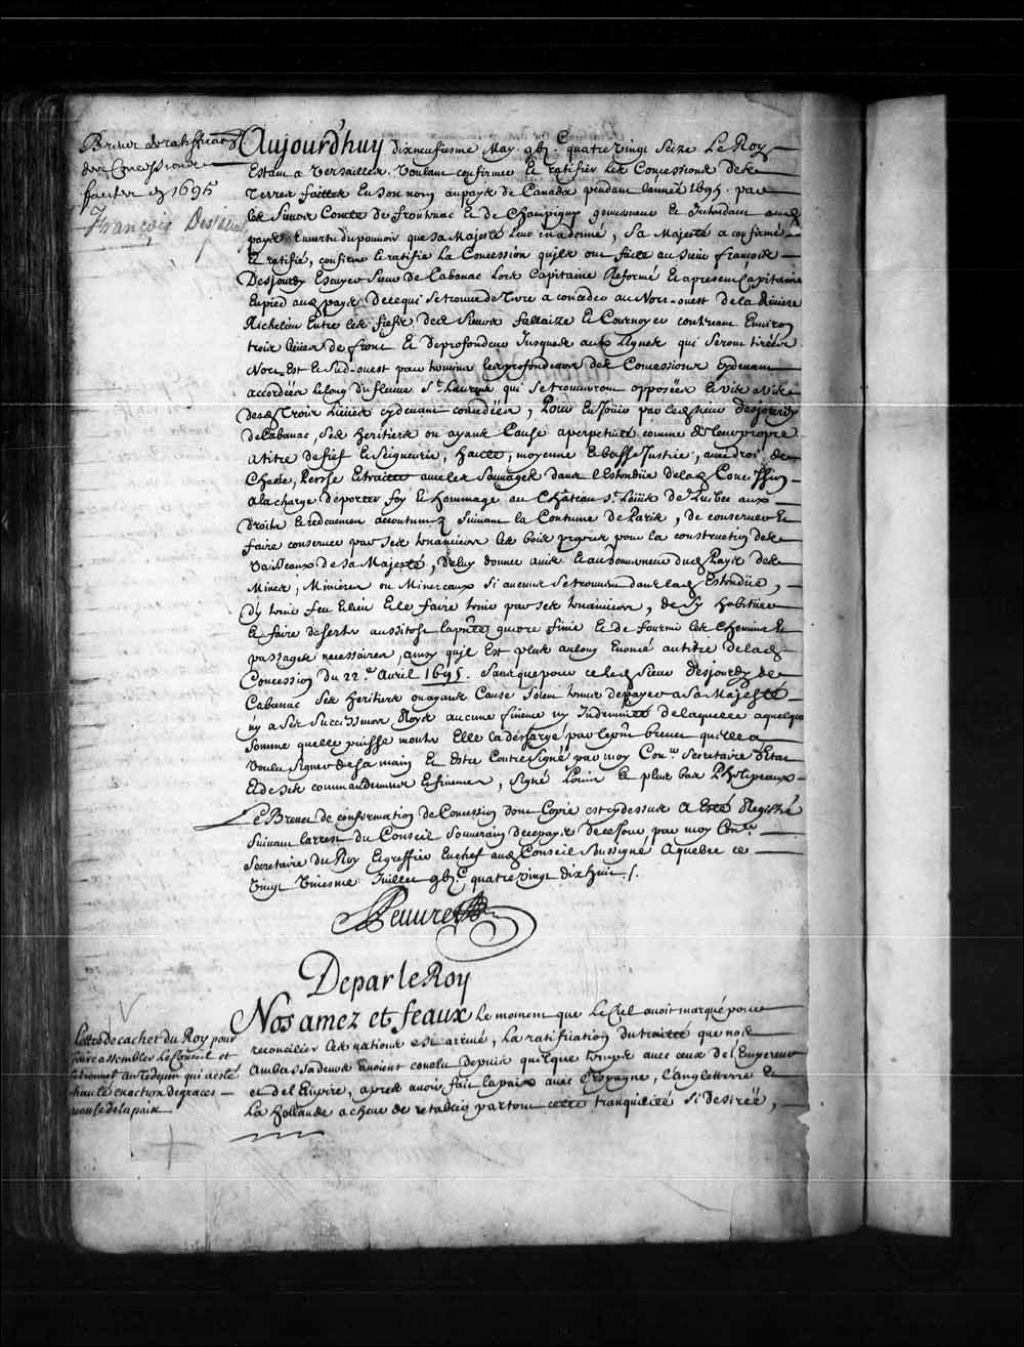 Brevet de ratification
des Concessions
faictes en 1695
François Desjourdy
Aujourd'huy dixneufiesme May gbjC quatre vingt seize Le Roy
Estant a Versailles. Voulant confirmer et ratifier les Concessions des
Terres faittes En son nom au pays de Canada pendant l'année 1695. par
les Sieurs Comte de frontenac et de Champigny gouverneur et Intendant aud
pays En vertu du pouvoir que sa Majesté leur en a donné, sa Majesté a confirmé
et ratifié, confirme et ratifie la Concession qu'ils ont faite au sieur françois
Desjourdy Escuyer Sieur de Cabanac lors Capitaine Reformé et apresent Capitaine
En pied aud pays de ce qui se trouve de Terre a conceder au Nort-ouest de la Riviere
Richelieu Entre les fiefs des Sieurs fallaize et Cournoyer contenant Environ
trois lieües de front et de profondeur Jusques aux Lignes qui seront tirées
Nort Est et Sud-ouest pour terminer les profondeurs des Concessions cydevant
accordées le long du fleuve St Laurent qui se trouveront opposées et vis a vis
desd Trois Lieües cydevant concedées, Pour En Jouir par led sieur desjourdy
de Cabanac, ses heritiers ou ayans Cause a perpetuité comme de leur propre
a titre de fief et Seigneurie, haute, moyenne et basse Justice, avec droit de
Chasse, Pesche et traitte avec les Sauvages dans l'Estendüe de lad Concession
a la charge de porter foy et hommage au Château St Loüis de Quebec aux
droits et redevances accoutumez suivant la Coutume de Paris, de conserver et
faire conserver par ses tenanciers les bois propres pour la construction des
Vaisseaux de sa Majesté, de luy donner avis et au Gouverneur dud Pays des
Mines, Minieres ou Mineraux si aucuns se trouvent dans lad Estendüe,
d'y tenir feu et lieu et le faire tenir par ses tenanciers, de s'y habituer
et faire deserter aussitost la guerre finie et de fournir les chemins et
passages necessaires, ainsy qu'il est plus au long Enoncé au titre de lad
Concession du 22e Avril 1695. sans que pour ce led Sieur desjourdy de
Cabanac ses heritiers ou ayans Cause soient tenus de payer a sa Majesté
ny a ses Successeurs Roys aucune finance ny Indemnité de laquelle a quelque
somme quelle puisse monter Elle la deschargé par le pnt brevet qu'elle a
voulu signer de sa main et Estre Contresigné par moy Conr Secretaire d'Estat
et de ses commandemens et finances, signé Louis et plus bas Phelipeaux
Le Brevet de confirmation de Concession dont Copie est cydessus a Esté Registré
suivant l'arrest du Conseil Souverain de ce pays de ce jour, par moy Conr
Secretaire du Roy et greffier En chef aud Conseil Soussigné a Quebec ce
Vingt Uniesme Juillet gbjC quatre vingt dix huit
Peuvret
De par le Roy
Nos amez et feaux Le moment que Le Ciel avoit marqué pour
reconcilier les nations est arrivé, La ratification du traitté que nos
Ambassadeurs avoient conclu depuis quelque temps avec ceux de l'Empereur
et de l'Empire, apres avoir fait la paix avec l'Espagne, l'angleterre et
la hollande acheve de retablir par tout cette tranquilité si desirée,
Lettre de cachet du Roy pour
faire assembler le Conseil et
qui a esté
chanté en action de graces
pour la paix